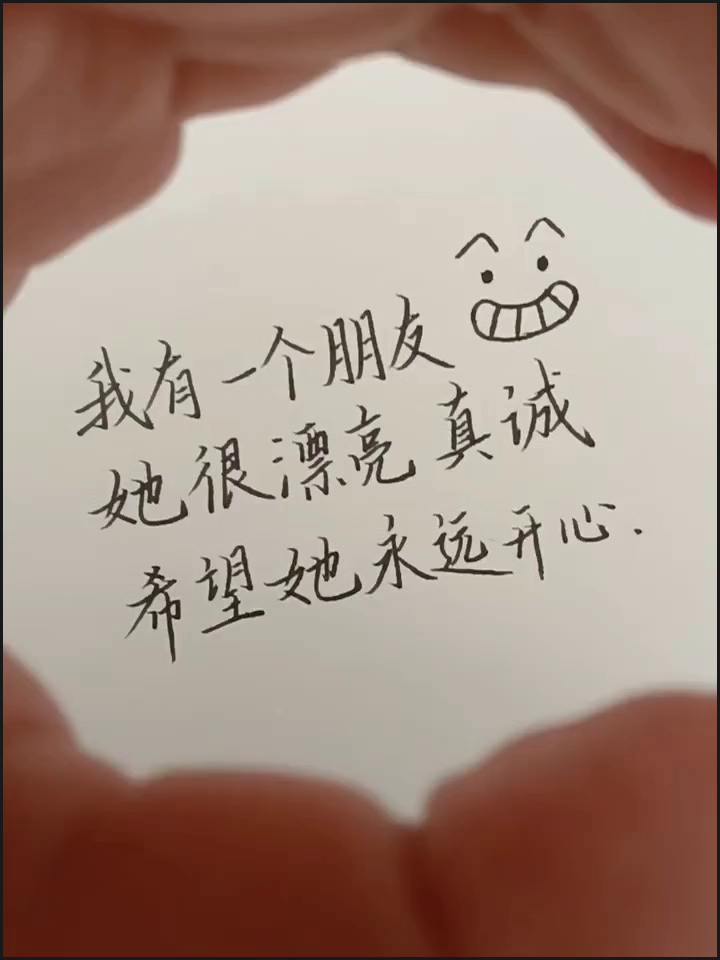 我有一个朋友
她很漂亮真诚
希望她永远开心.